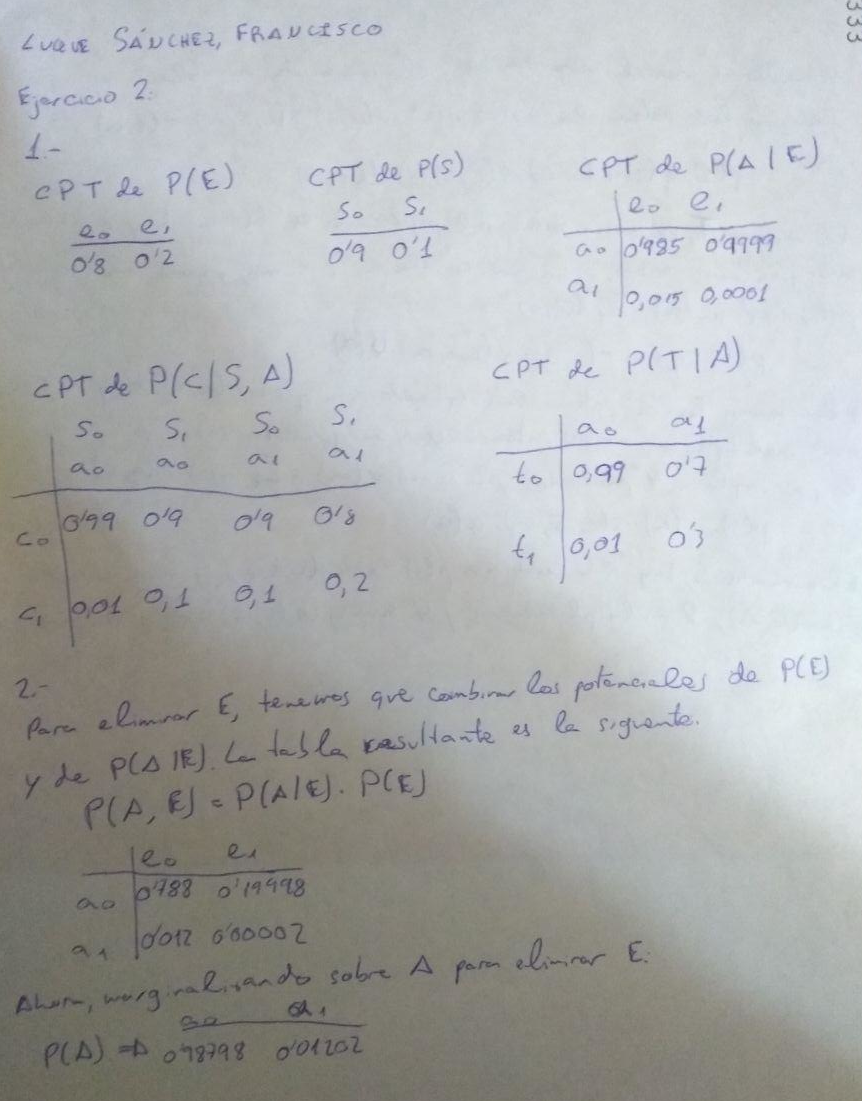 333
LUQUE SÁNCHEZ, FRANCISCO
Ejercicio 2:
1.-
CPT de P(E)
e₀ e₁
0'8 0'2
CPT de P(S)
S₀ S₁
0'9 0'1
CPT de P(A|E)
e₀ e₁
a₀ 0'985 0'9999
a₁ 0,015 0,0001
CPT de P(C|S, A)
S₀ S₁ S₀ S₁
a₀ a₀ a₁ a₁
C₀ 0'99 0'9 0'9 0'8
C₁ 0,01 0,1 0,1 0,2
CPT de P(T|A)
a₀ a1
t₀ 0,99 0'7
t₁ 0,01 0'3
2.-
Para eliminar E, tenemos que combinar los potenciales de P(E)
y de P(A|E). La tabla resultante es la siguiente.
P(A, E) = P(A|E) · P(E)
e₀ e₁
a₀ 0'788 0'19998
a₁ 0'012 0'00002
Ahora, marginalizando sobre A para eliminar E:
a₀ a₁
P(A) ⇒ 0'98798 0'01202